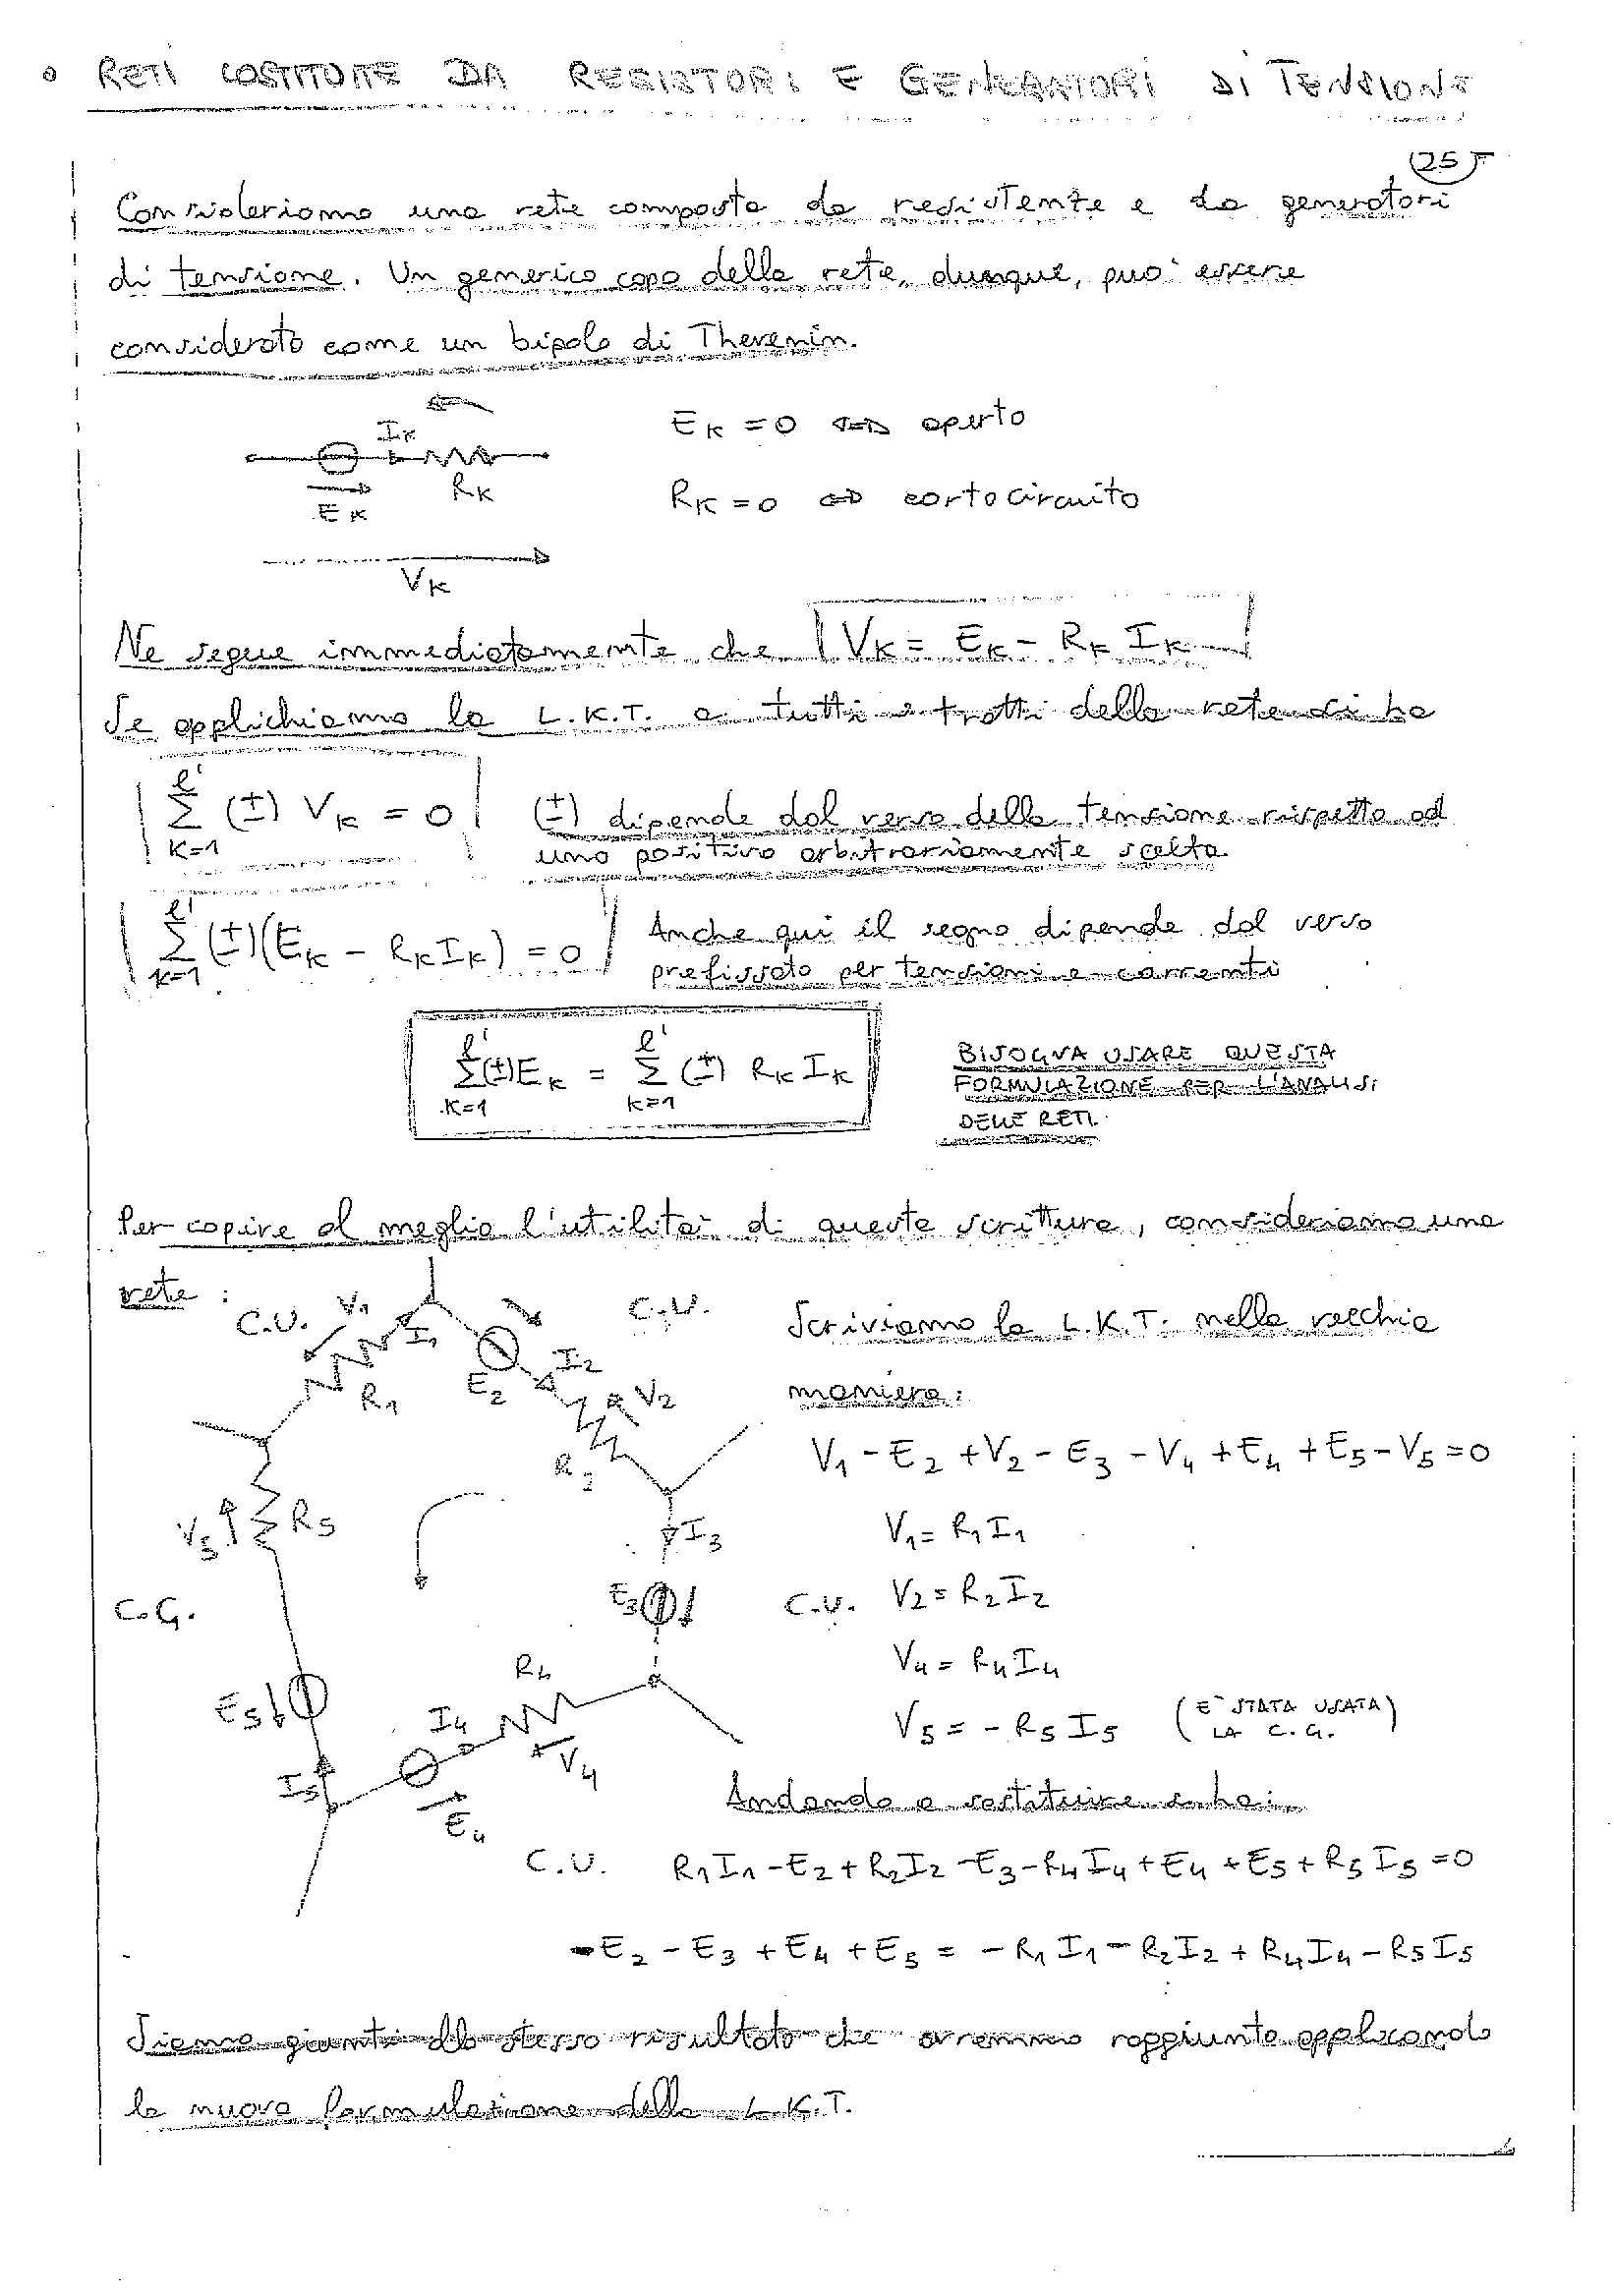 ° RETI COSTITUITE DA RESISTORI E GENERATORI DI TENSIONE
25
Consideriamo una rete composta da resistenze e da generatori
di tensione. Un generico capo della rete, dunque, può essere
considerato come un bipolo di Thevenin.
IK
RK
EK
VK
EK = 0 ⇔ aperto
RK = 0 ⇔ cortocircuito
Ne segue immediatamente che VK = EK - RK IK
Se applichiamo la L.K.T. a tutti i tratti della rete si ha
l' Σ K=1 (±) VK = 0 (±) dipende dal verso della tensione rispetto ad
uno positivo arbitrariamente scelto.
l' Σ K=1 (±)(EK - RK IK) = 0 Anche qui il segno dipende dal verso
prefissato per tensioni e correnti
l' Σ K=1 (±) EK = l' Σ K=1 (±) RK IK
BISOGNA USARE QUESTA
FORMULAZIONE PER L'ANALISI
DELLE RETI.
Per capire al meglio l'utilità di questa scrittura, consideriamo una
rete:
C.U. V1 I1 R1
C.U. E2 I2 V2 R2
V5 R5
I3
E3
C.U.
C.G.
E5 I5
R4 I4 V4 E4
C.U.
Scriviamo la L.K.T. nella vecchia
maniera:
V1 - E2 + V2 - E3 - V4 + E4 + E5 - V5 = 0
V1 = R1 I1
V2 = R2 I2
V4 = R4 I4
V5 = - R5 I5 (E' STATA USATA LA C.G.)
Andando a sostituire si ha:
R1 I1 - E2 + R2 I2 - E3 - R4 I4 + E4 + E5 + R5 I5 = 0
- E2 - E3 + E4 + E5 = - R1 I1 - R2 I2 + R4 I4 - R5 I5
Siamo giunti allo stesso risultato che avremmo raggiunto applicando
la nuova formulazione della L.K.T.